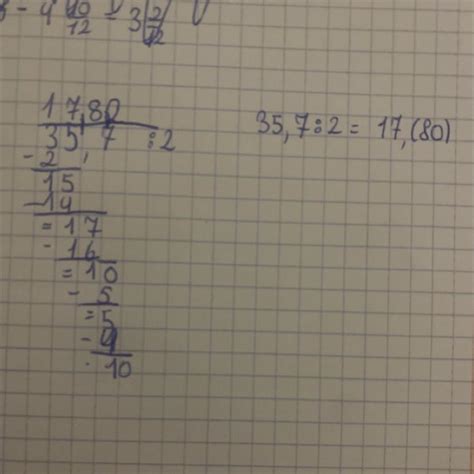 - 4 10/12 = 3 2/12
17,80
35,7 : 2
- 2
15
- 14
= 17
- 16
= 10
- 5
= 5
-
10
35,7 : 2 = 17,(80)